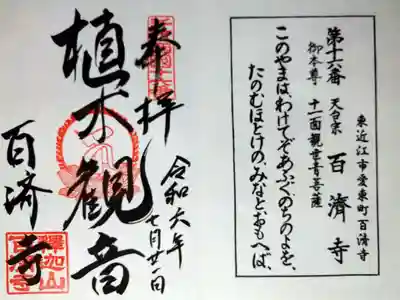 東近江市愛東町百済寺
第十六番 天台宗 百濟寺
御本尊 十一面観世音菩薩
このやまは、わけてぞあふぐのちのよを、
たのむほとけの、みなとおもへば、
奉拝
令和六年
七月廿一日
植木観音
百済寺
釋迦山
百済寺